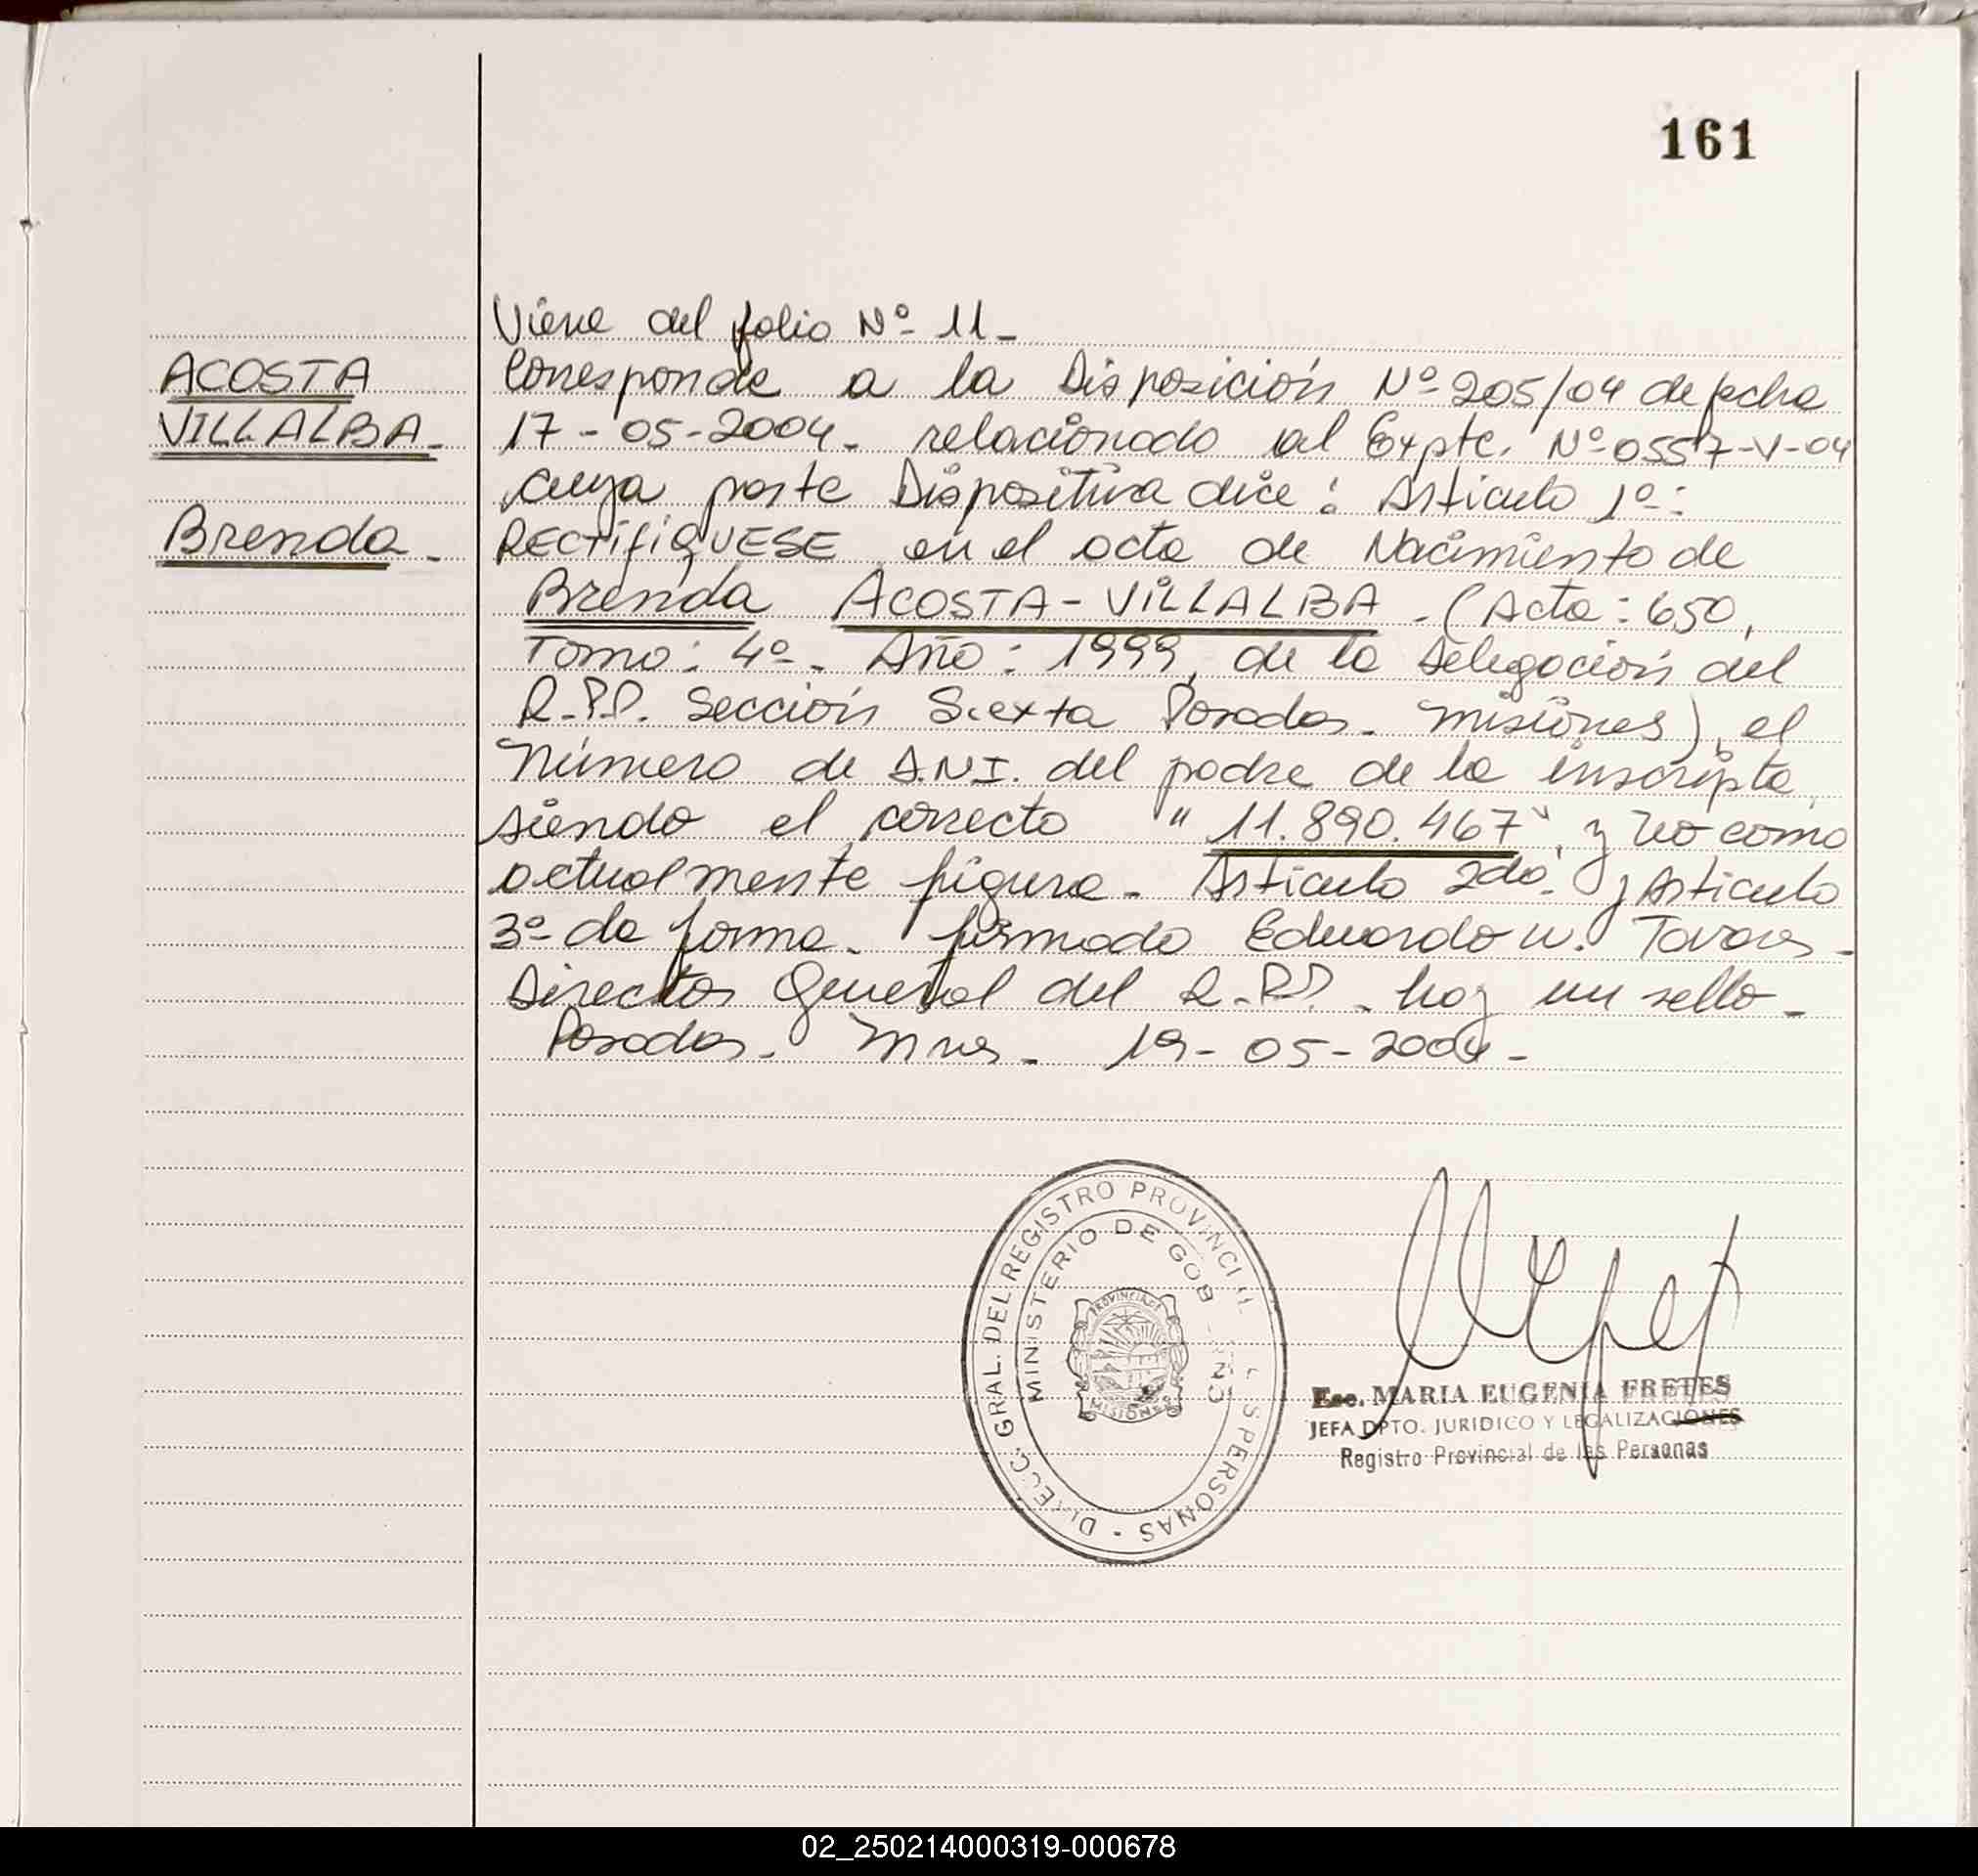 161
Viene del folio Nº 11-
ACOSTA
VILLALBA-
Brenda-
Corresponde a la Disposición Nº 205/04 de fecha
17-05-2004- relacionado al Expte. Nº 0557-V-04
cuya parte Dispositiva dice: Artículo 1º:
RECTIFIQUESE en el acta de Nacimiento de
Brenda ACOSTA-VILLALBA-(Acta: 650,
Tomo: 4º- Año: 1999, de la Delegación del
R.P.P. Sección Sexta Posadas- Misiones), el
Número de D.N.I. del padre de la inscripta,
siendo el correcto "11.890.467", y no como
actualmente figura- Artículo 2do. y Artículo
3º de forma- firmado Eduardo W. Tavares-
Director General del R.P.P.- hay un sello-
Posadas- Mnes- 19-05-2004-
DIRECC. GRAL. DEL REGISTRO PROVINCIAL PERSONAS -
MINISTERIO DE GOB
PROVINCIA DE
MISIONES
Esc. MARIA EUGENIA FRETES
JEFA DPTO. JURIDICO Y LEGALIZACIONES
Registro Provincial de las Personas
02_250214000319-000678